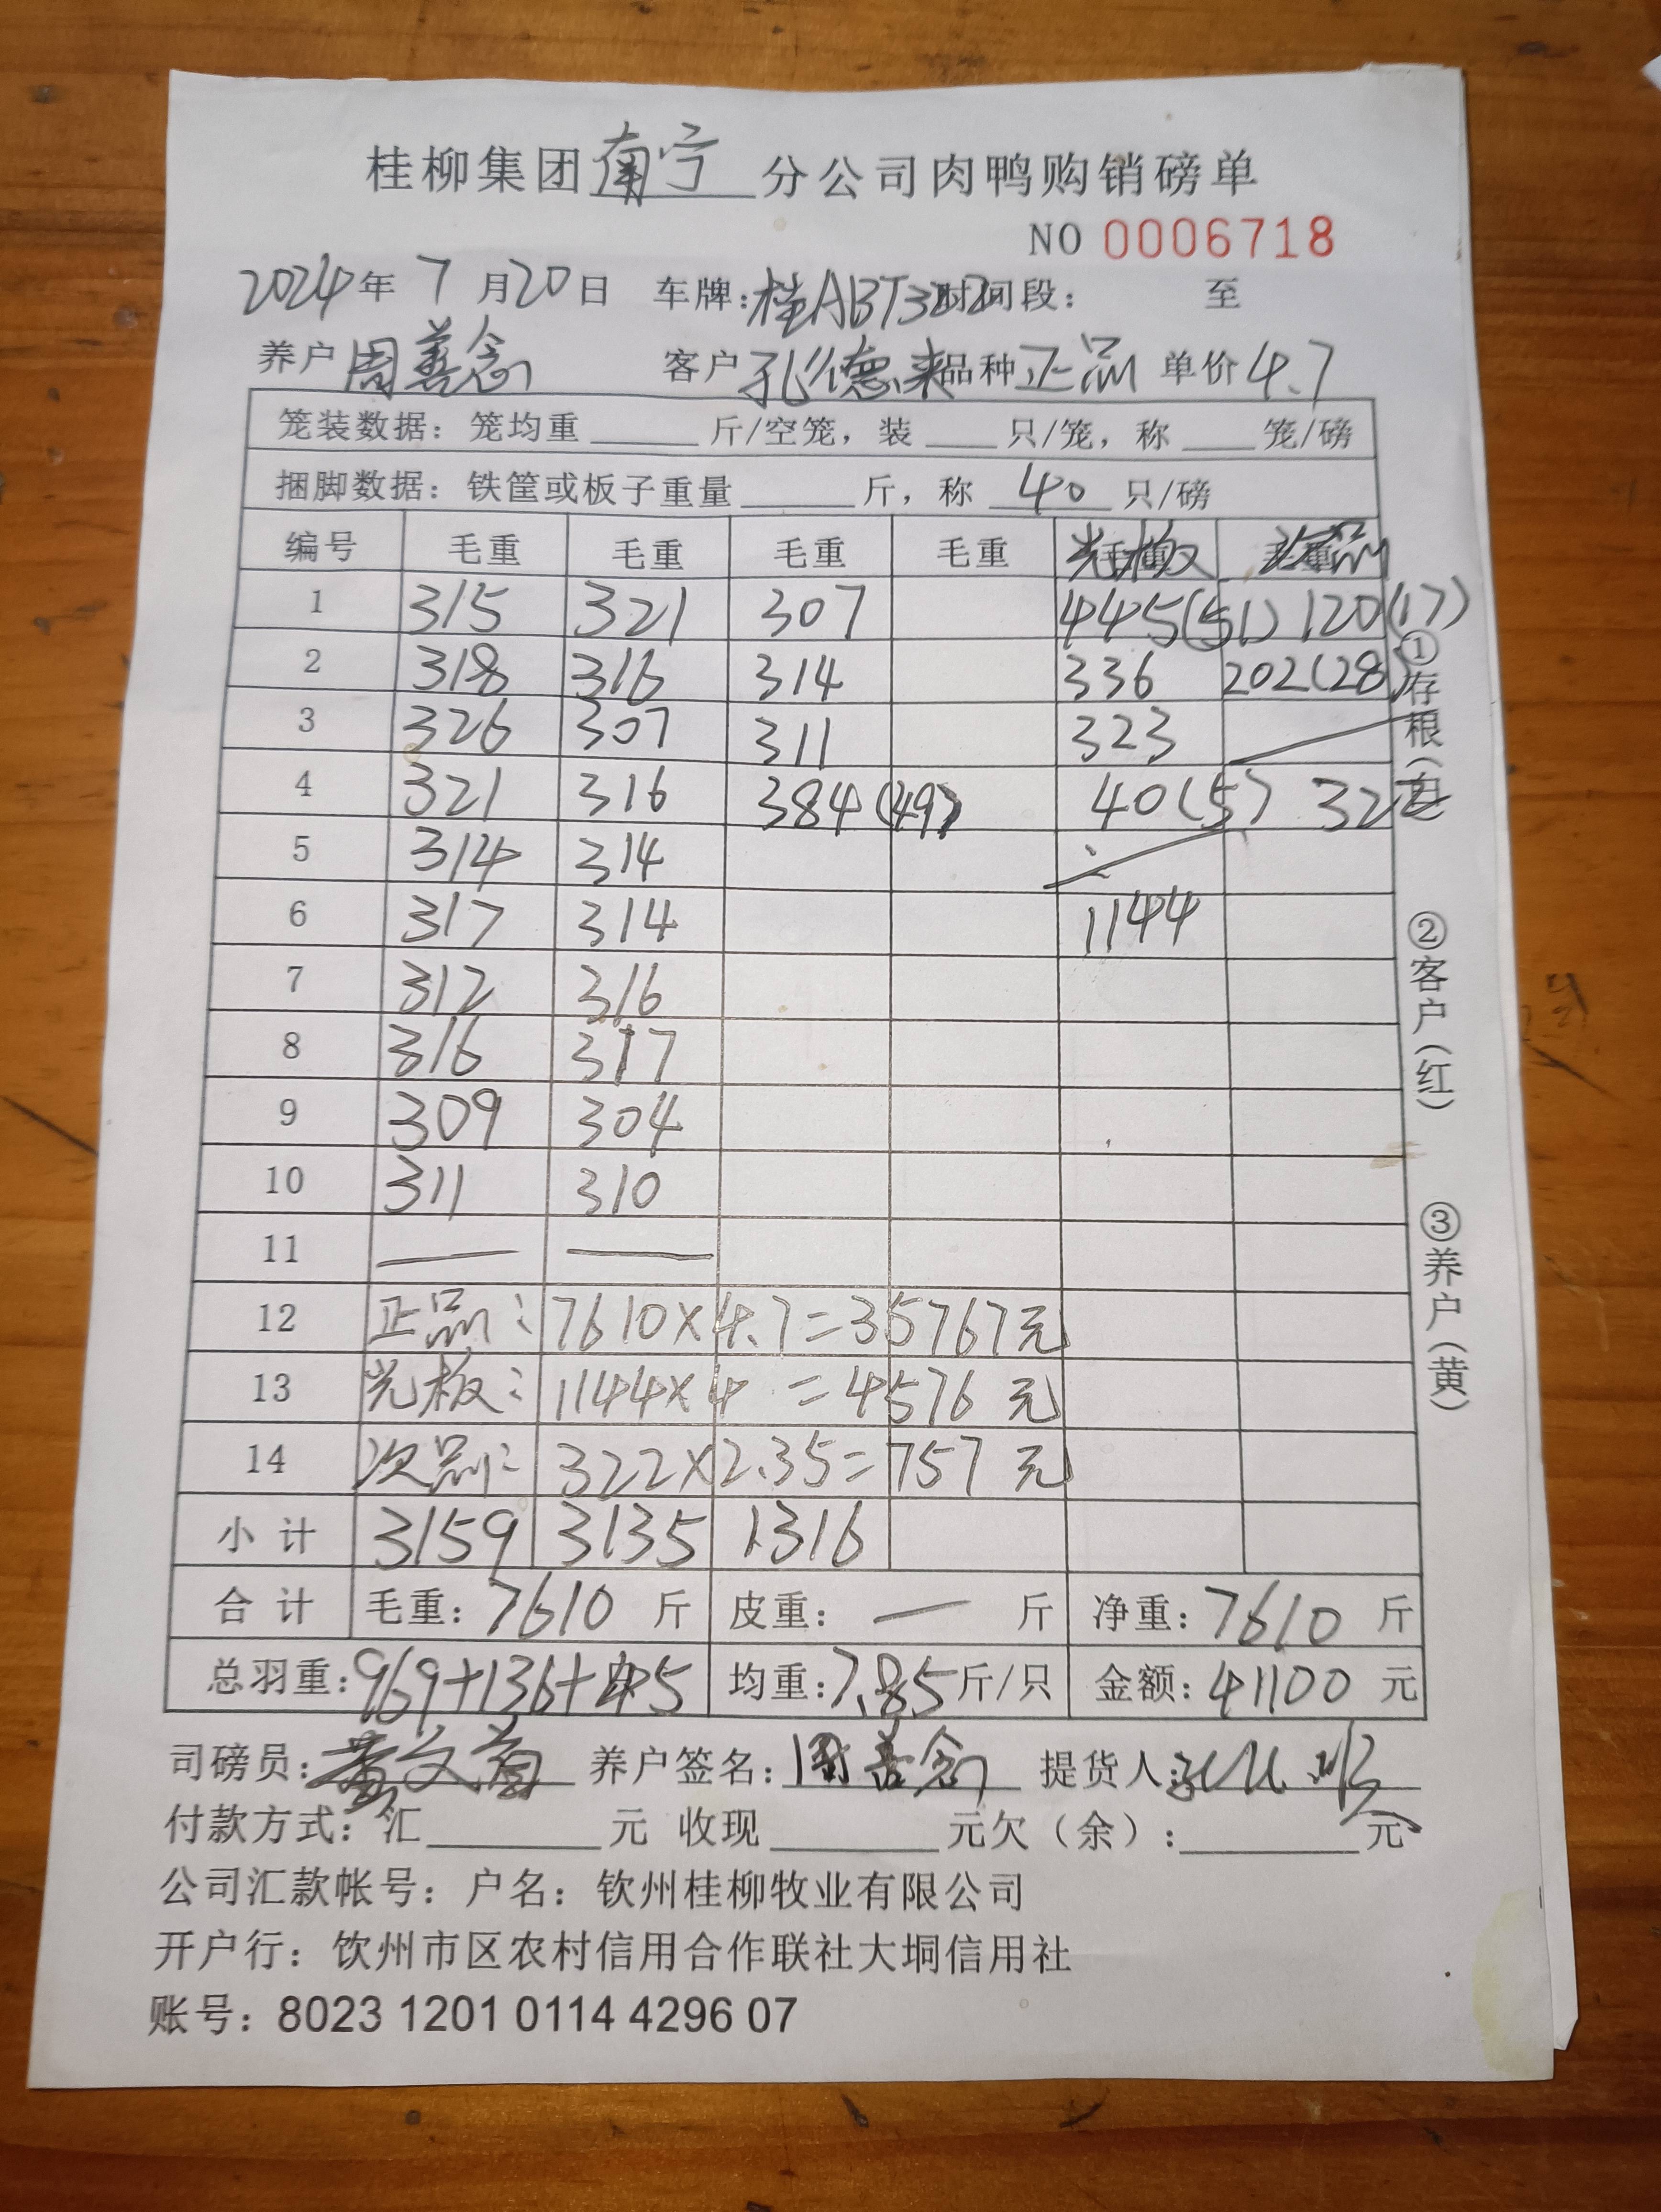 桂柳集团南宁分公司肉鸭购销磅单
NO 0006718
2024年7月20日 车牌:桂ABT3 时间段: 至
养户周善念 客户孔德来 品种正品 单价4.7
笼装数据: 笼均重 斤/空笼, 装 只/笼, 称 笼/磅
捆脚数据: 铁筐或板子重量 斤, 称 40 只/磅
编号 毛重 毛重 毛重 毛重 光板 次品
1 315 321 307 445(51) 120(17)
2 318 316 314 336 202(28)
3 326 307 311 323
4 321 316 384(49) 40(5) 322
5 314 314
6 317 314 1144
7 312 316
8 316 317
9 309 304
10 311 310
11 — —
12 正品: 7610×4.7=35767元
13 光板: 1144×4 =4576元
14 次品: 322×2.35=757元
小计 3159 3135 1316
合计 毛重: 7610 斤 皮重: — 斤 净重: 7610 斤
总羽重: 969+136+45 均重: 7.85斤/只 金额: 41100 元
司磅员: 黄文 养户签名: 周善念 提货人:
付款方式: 汇 元 收现 元欠(余): 元
公司汇款帐号: 户名: 钦州桂柳牧业有限公司
开户行: 饮州市区农村信用合作联社大垌信用社
账号: 8023 1201 0114 4296 07
①存根(白)
②客户(红)
③养户(黄)